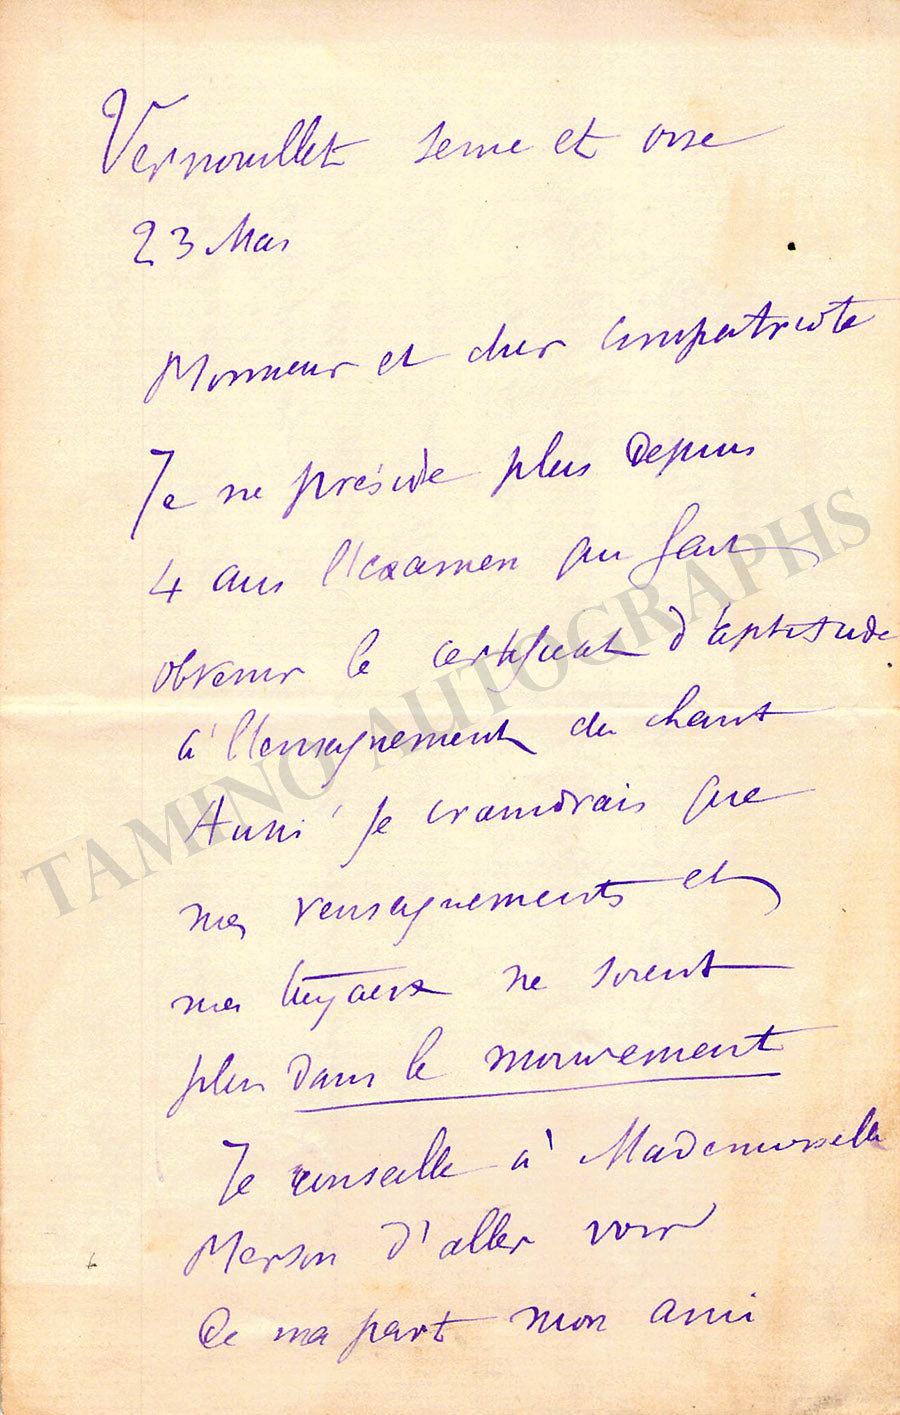 Vernouillet Seine et oise
23 Mai
Monsieur et cher compatriote
Je ne préside plus depuis
4 ans l'examen qui fait
obtenir le certificat d'aptitude
à l'enseignement du chant
Aussi je craindrais que
mes renseignements et
mes tuyaux ne soient
plus dans le mouvement
Je conseille à Mademoiselle
Merson d'aller voir
de ma part mon ami
TAMINO AUTOGRAPHS